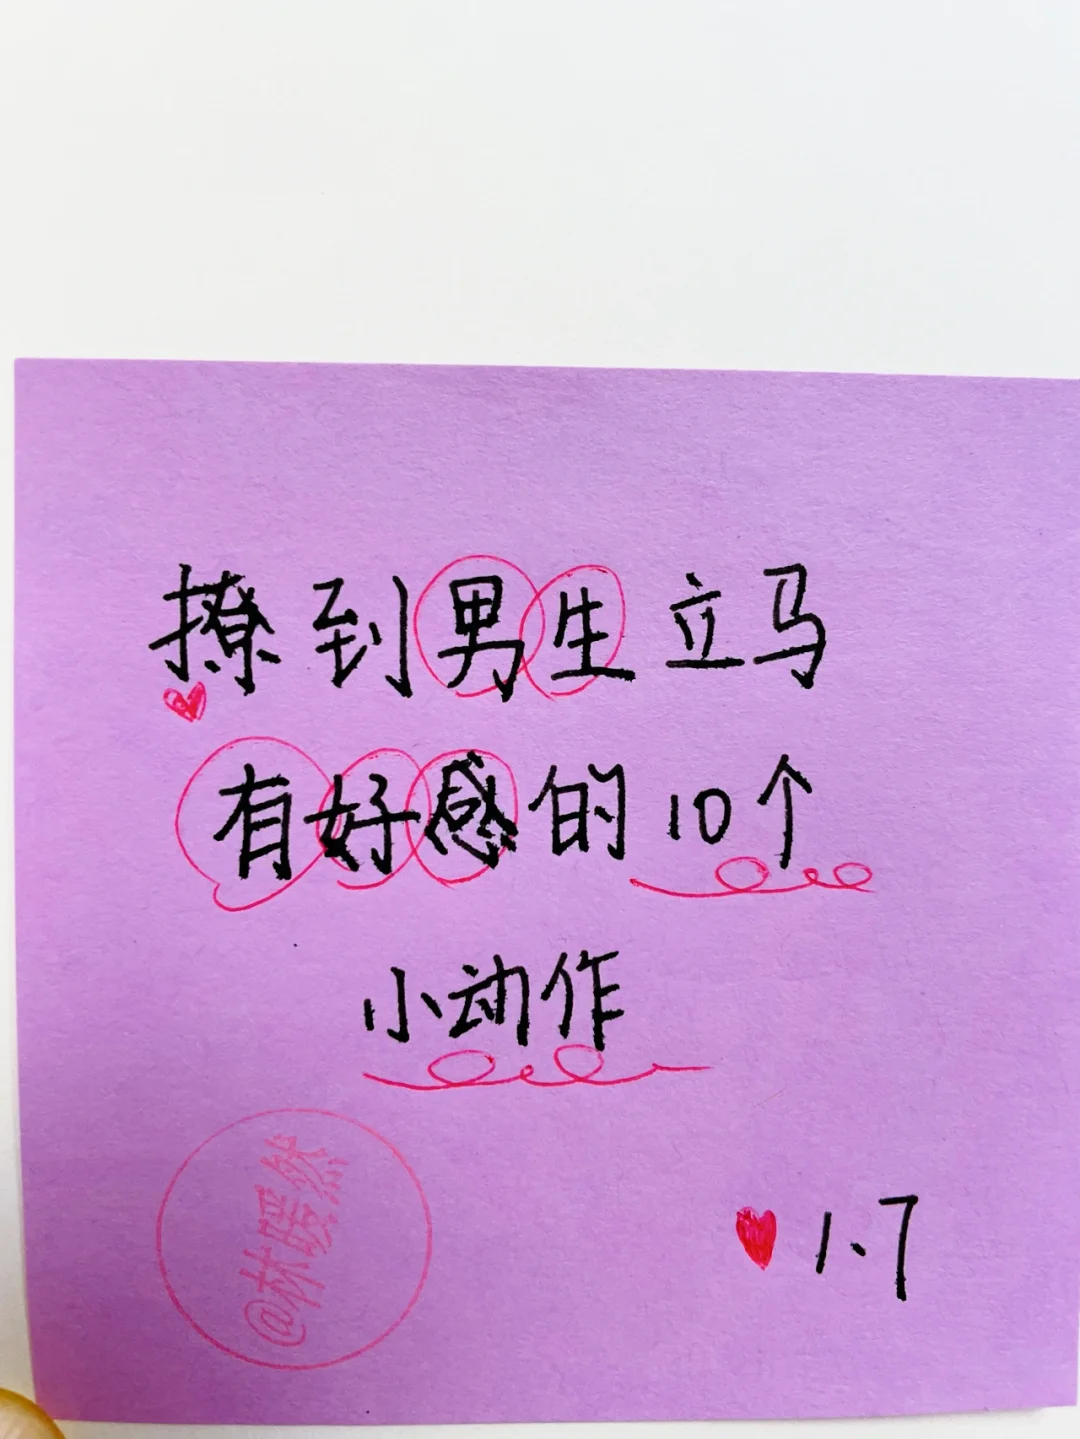 撩到男生立马
有好感的10个
小动作
@林暖然
1.7